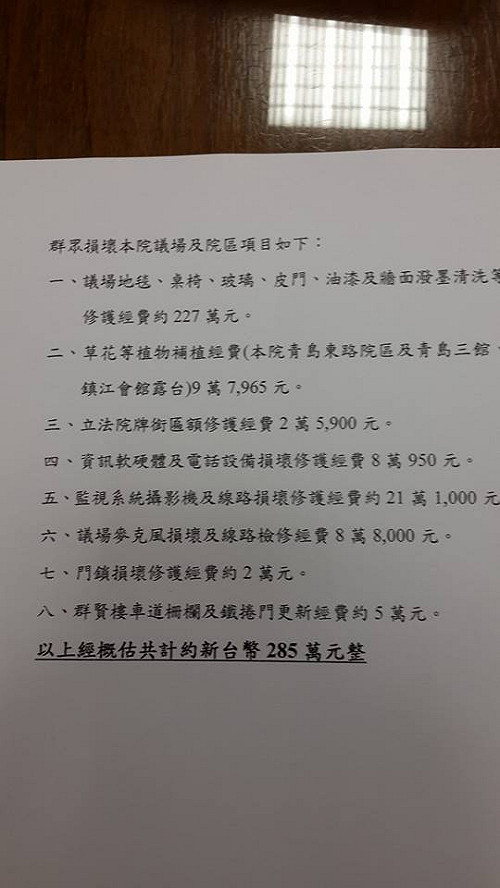 群眾損壞本院議場及院區項目如下：
一、議場地毯、桌椅、玻璃、皮門、油漆及牆面潑墨清洗等
修護經費約 227 萬元。
二、草花等植物補植經費(本院青島東路院區及青島三館、
鎮江會館露台)9 萬 7,965 元。
三、立法院牌銜區額修護經費 2 萬 5,900 元。
四、資訊軟硬體及電話設備損壞修護經費 8 萬 950 元。
五、監視系統攝影機及線路損壞修護經費約 21 萬 1,000 元
六、議場麥克風損壞及線路檢修經費 8 萬 8,000 元。
七、門鎖損壞修護經費約 2 萬元。
八、群賢樓車道柵欄及鐵捲門更新經費約 5 萬元。
以上經概估共計約新台幣 285 萬元整